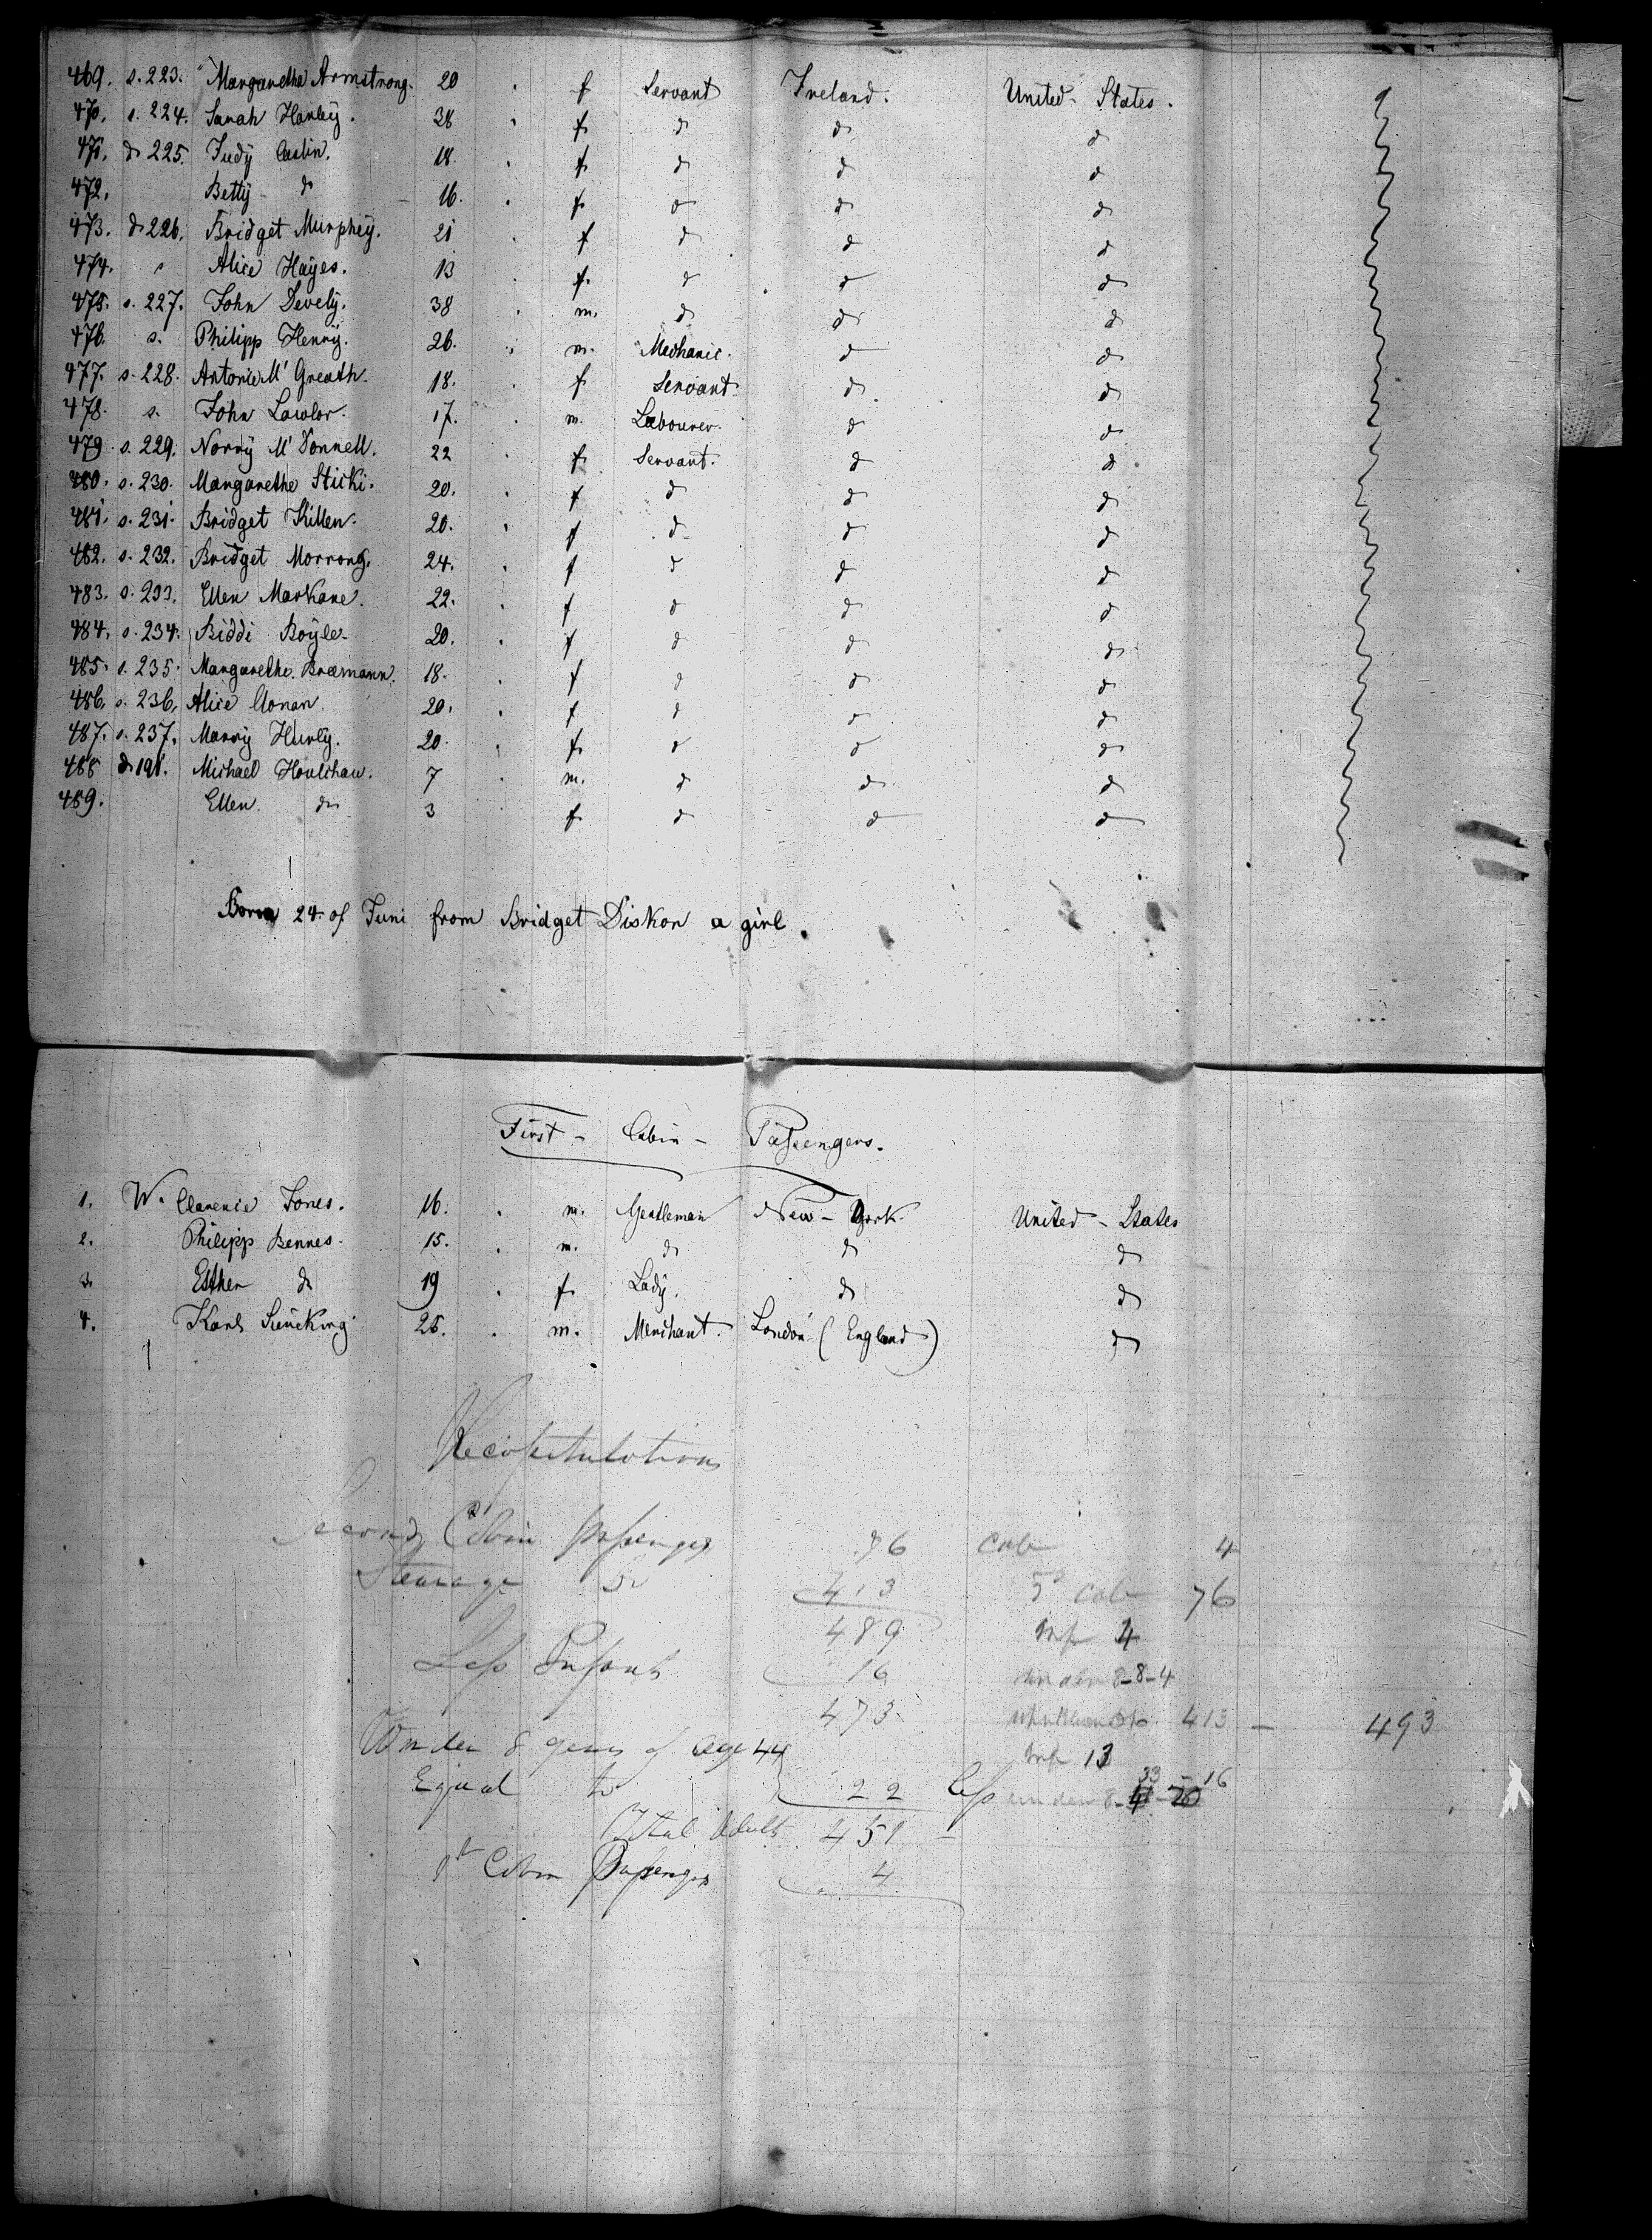 469. s. 223. Margarethe Armstrong. 20 f Servant Ireland. United States.
470. s. 224. Sarah Hanley. 38 f do do do
471. do 225. Judy Caslin. 18. f do do do
472. Betty do 16. f do do do
473. do 226. Bridget Murphey. 21 f do do do
474. Alice Hayes. 13 f. do do do
475. s. 227. John Devely. 38 m. do do do
476. s. Philipp Henry. 26. m. Mechanic. do do
477. s. 228. Antonie M' Greath. 18. f Servant do do
478. s. John Lawlor. 17. m. Labourer. do do
479. s. 229. Norry M' Donnell. 22 f Servant. do do
480. s. 230. Margarethe Sticki. 20. f do do do
481. s. 231. Bridget Killen. 20. f do do do
482. s. 232. Bridget Morrong. 24. f do do do
483. s. 233. Ellen Markane. 22. f do do do
484. s. 234. Biddi Boyle 20. f do do do
485. s. 235. Margarethe Braemann. 18. f do do do
486. s. 236. Alice Conan. 20. f do do do
487. s. 237. Marry Hurly. 20. f. do do do
488 do 198. Michael Houlihau. 7 m. do do do
489. Ellen do 3 f. do do do
Born 24. of Juni from Bridget Diskon a girl.
First - Cabin - Passengers.
1. W. Clarence Jones. 16. m. Gentleman New-York. United-States
2. Philipp Bennes. 15. m. do do do
3. Esther do 19 f. Lady. do do
4. Karl Sieveking 25. m. Merchant. London (England) do
Recapitulation
Second Cabin Passenger 76 Cab 4
Steerage Do 413 2d Cab 76
489 Inf 4
Less Infants 16 under 8-8-4
473 413 - 493
Under 8 years of age 44 Inf 13
33 - 16
Equal to 22 Less under 8
Total Adult 451 -
1st Cabin Passenger 4